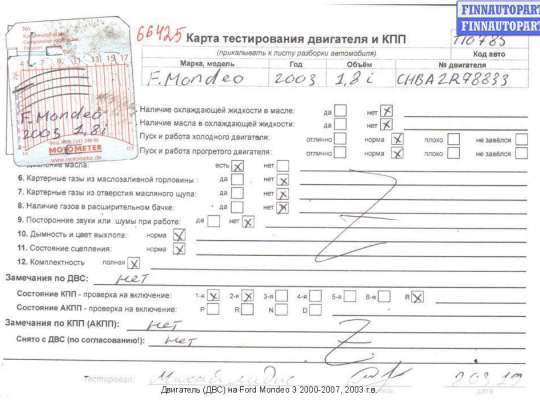 FINNAUTOPART
FINNAUTOPART
66425
Карта тестирования двигателя и КПП
(прикалывать к листу разборки автомобиля)
Код авто
Марка, модель Год Объём № двигателя
F. Mondeo 2003 1,8i CHBA2R78833
F. Mondeo
2003 1,8i
MOTOMETER
Наличие охлаждающей жидкости в масле: да нет X
Наличие масла в охлаждающей жидкости: да нет X
Пуск и работа холодного двигателя: отлично норма X плохо не завёлся
Пуск и работа прогретого двигателя: отлично норма X плохо не завёлся
масла: есть X нет
6. Картерные газы из маслозаливной горловины: да нет X
7. Картерные газы из отверстия масляного щупа: да нет X
8. Наличие газов в расширительном бачке: да нет X
9. Посторонние звуки или шумы при работе: да нет X
10. Дымность и цвет выхлопа: норма X
11. Состояние сцепления: норма X
12. Комплектность полная X
Замечания по ДВС: нет
Состояние КПП - проверка на включение: 1-я X 2-я X 3-я 4-я 5-я 6-я R X
Состояние АКПП - проверка на включение: P R N D
Замечания по КПП (АКПП): нет
Снято с ДВС (по согласованию!): нет
Тестировал:
Двигатель (ДВС) на Ford Mondeo 3 2000-2007, 2003 г.в.